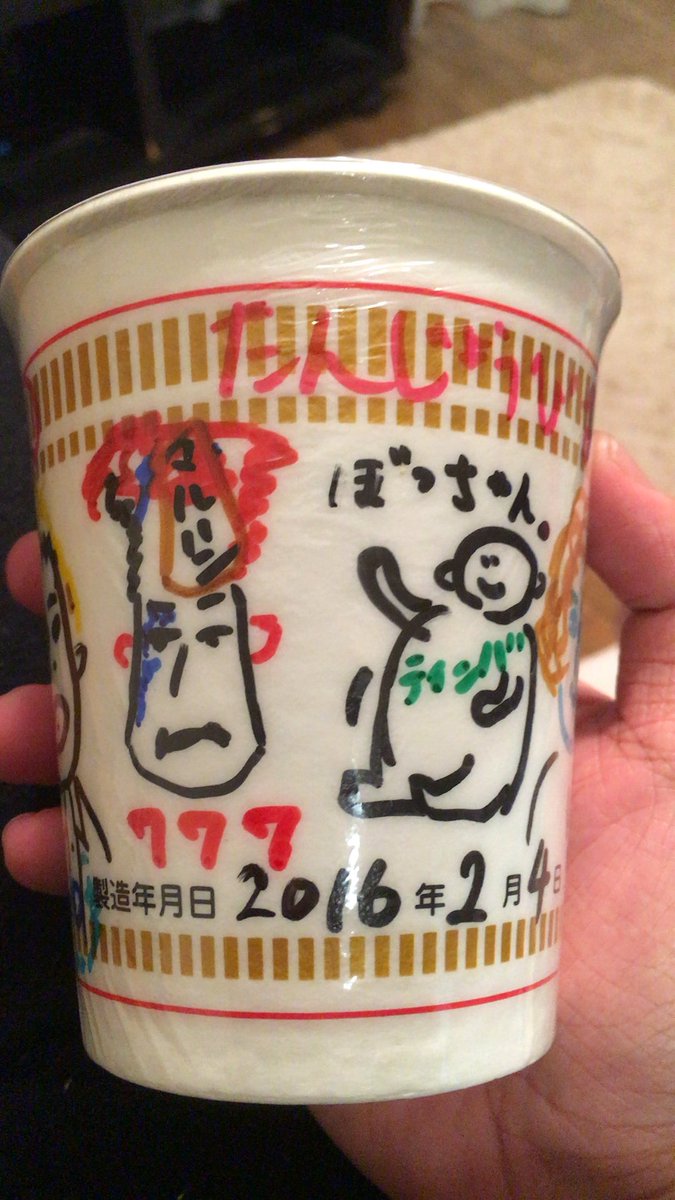 たんじょうび
マルハン
ぼっちゃん。
ティンバ
777
製造年月日 2016年2月4日